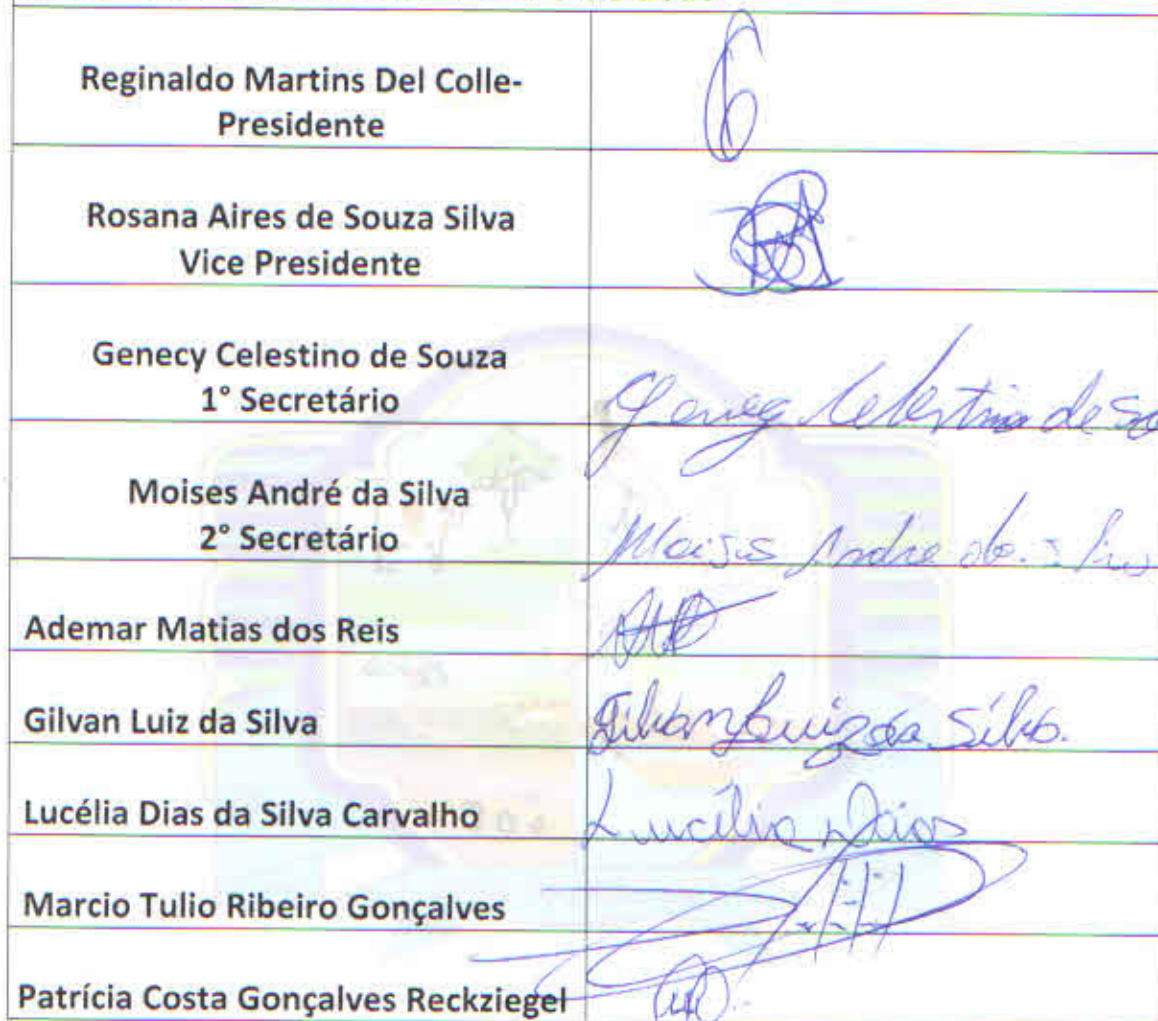 Reginaldo Martins Del Colle-
Presidente
Rosana Aires de Souza Silva
Vice Presidente
Genecy Celestino de Souza
1° Secretário
Genecy Celestino de So
Moises André da Silva
2° Secretário
Moises Andre da Silva
Ademar Matias dos Reis
Gilvan Luiz da Silva
Gilvan Luiz da Silva.
Lucélia Dias da Silva Carvalho
Lucélia Dias
Marcio Tulio Ribeiro Gonçalves
Patrícia Costa Gonçalves Reckziegel